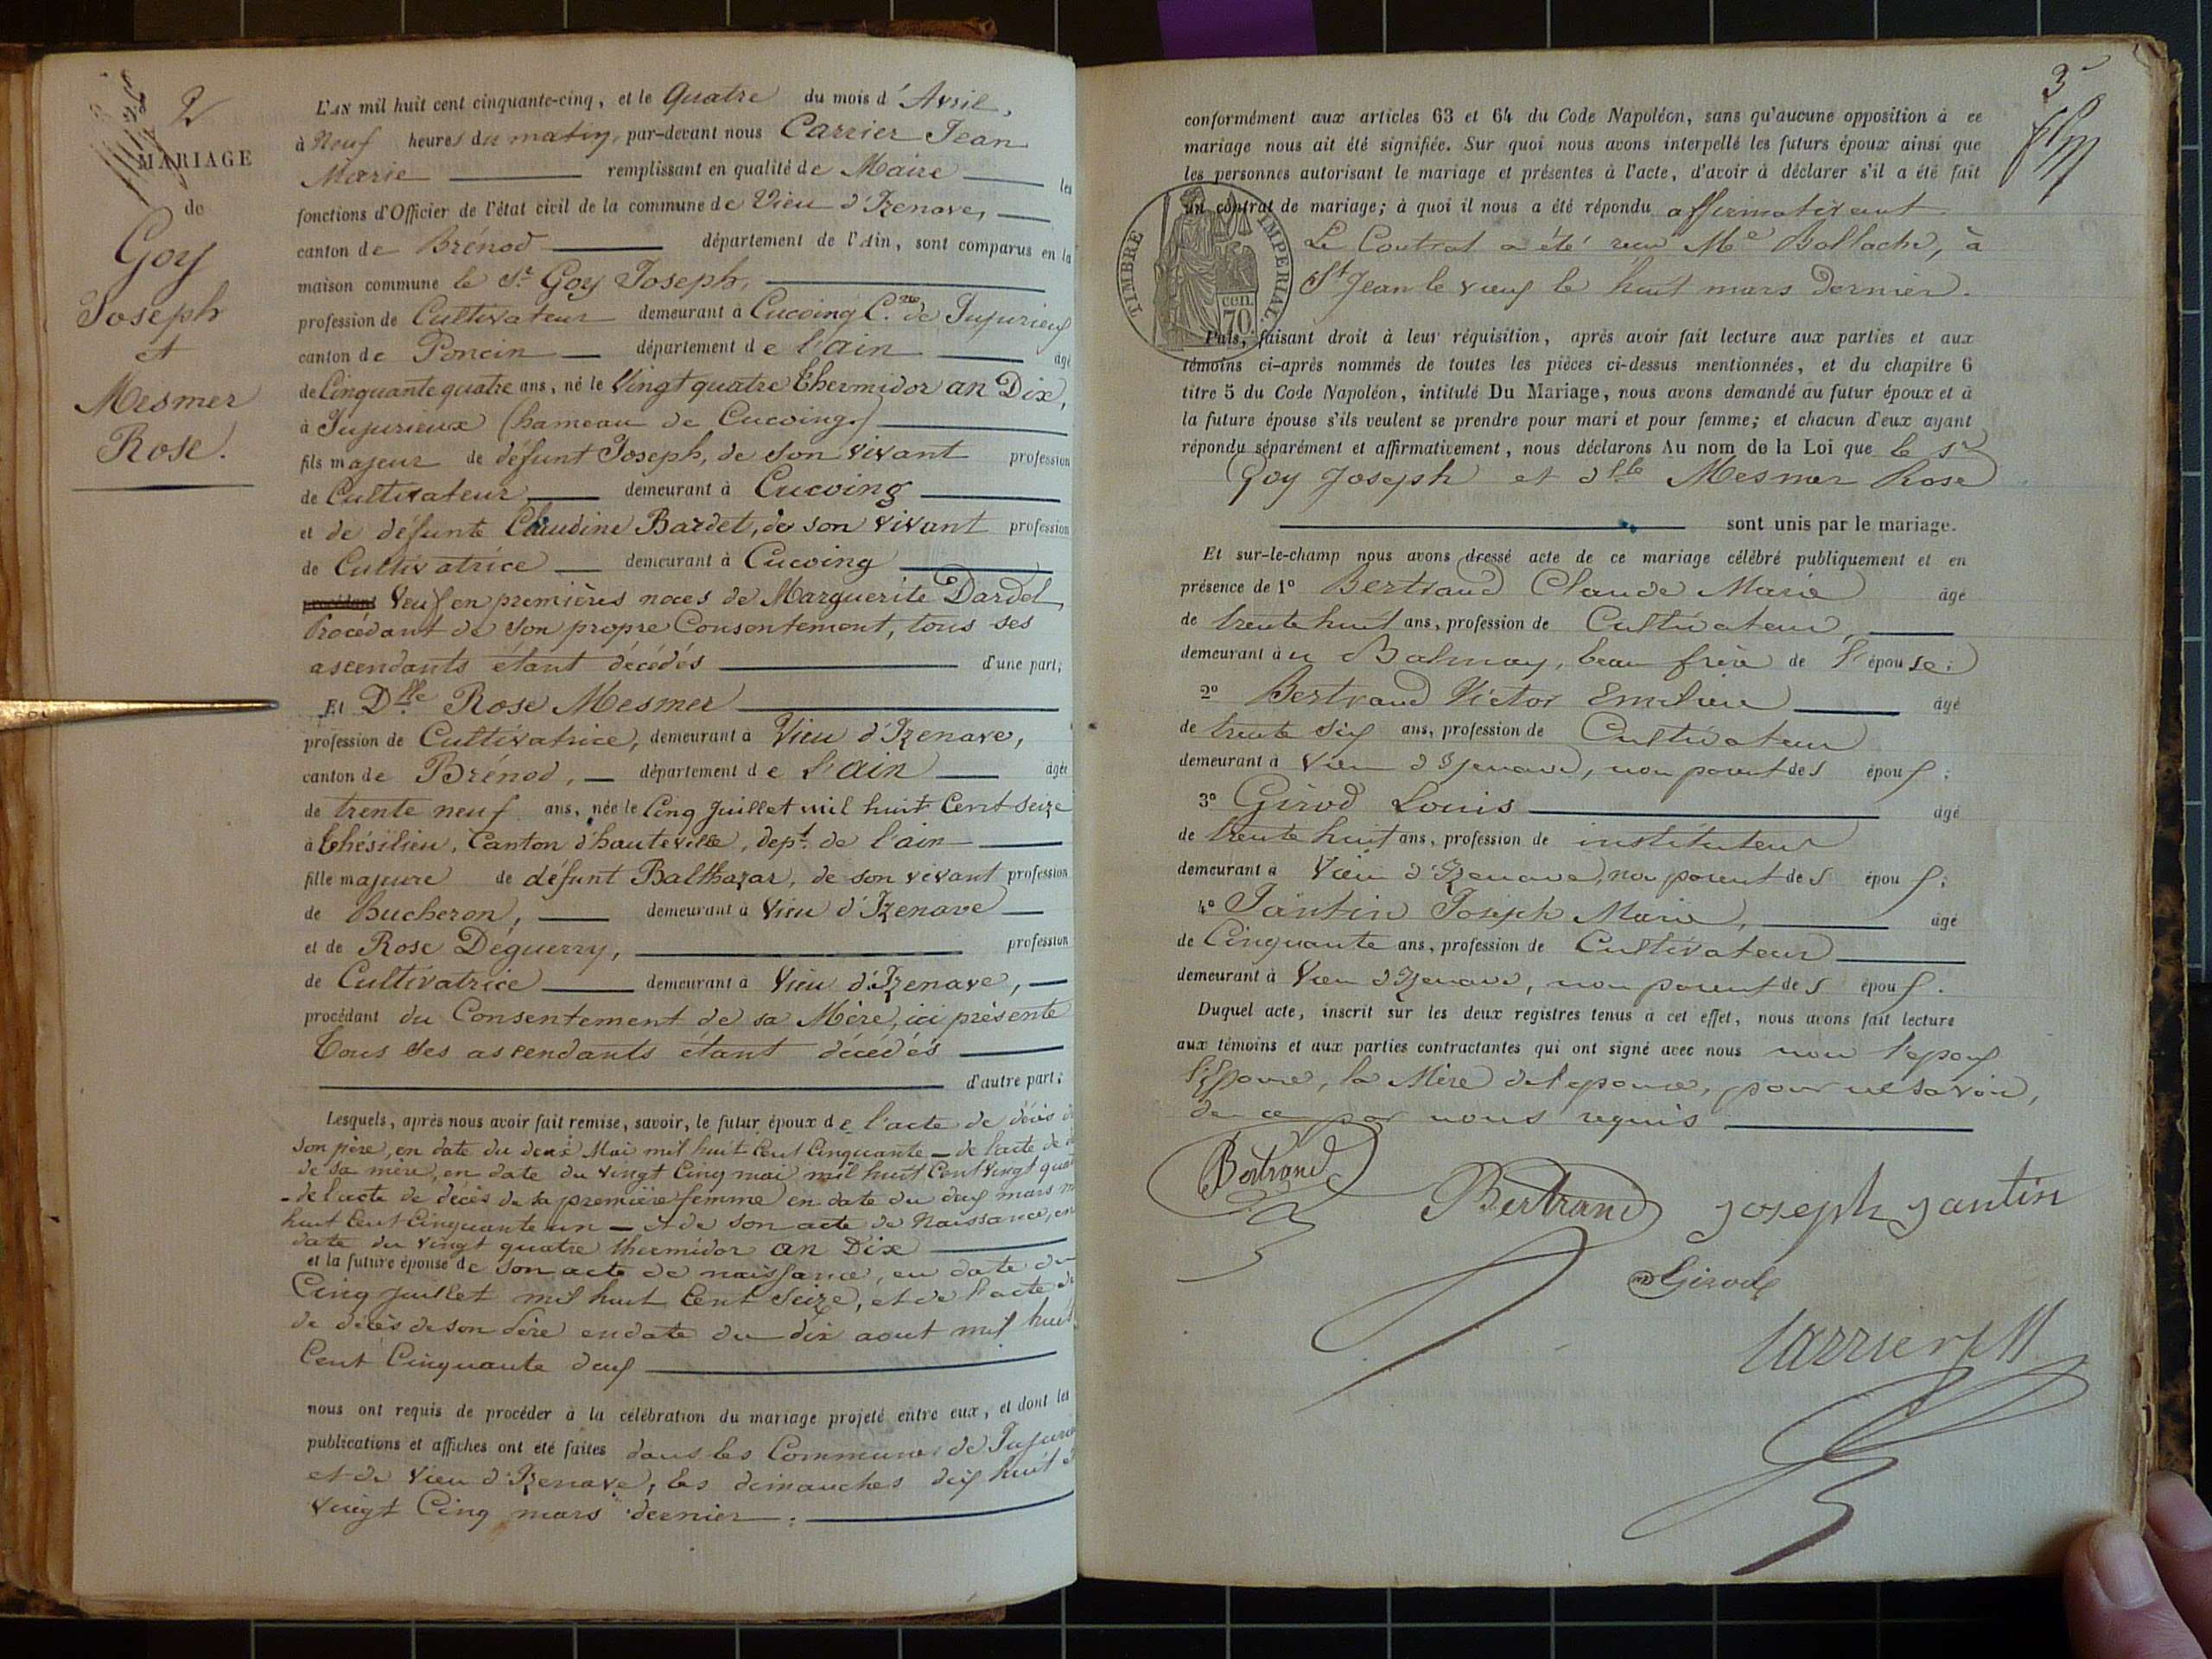 2
MARIAGE
de
Goy
Joseph
et
Mesmer
Rose.
L'AN mil huit cent cinquante-cinq, et le Quatre du mois d'Avril,
à Neuf heures du matin, par-devant nous Carrier Jean
Marie remplissant en qualité de Maire les
fonctions d'Officier de l'état civil de la commune de Vieu d'Izenave,
canton de Brénod département de l'Ain, sont comparus en la
maison commune le Sr Goy Joseph,
profession de Cultivateur demeurant à Cucoing Cne de Jujurieux
canton de Poncin département de l'ain âgé
de Cinquante quatre ans, né le Vingt quatre thermidor an Dix,
à Jujurieux (hameau de Cucoing)
fils majeur de défunt Joseph, de son vivant profession
de Cultivateur demeurant à Cucoing
et de défunte Claudine Bardet, de son vivant profession
de Cultivatrice demeurant à Cucoing
procédant Veuf en premières noces de Marguerite Dardel,
Procédant de son propre Consentement, tous ses
ascendants étant décédés d'une part;
Et Dlle Rose Mesmer
profession de Cultivatrice, demeurant à Vieu d'Izenave,
canton de Brénod, département de l'ain âgée
de trente neuf ans, née le Cinq Juillet mil huit Cent Seize
à thésilieu, Canton d'hauteville, dept. de l'ain
fille majeure de défunt Balthazar, de son vivant profession
de bucheron, demeurant à Vieu d'Izenave
et de Rose Déguerry, profession
de Cultivatrice demeurant à Vieu d'Izenave,
procédant du Consentement de sa Mère, ici présente
Tous ses ascendants étant décédés
d'autre part;
Lesquels, après nous avoir fait remise, savoir, le futur époux de l'acte de décès de
son père, en date du deux Mai mil huit Cent Cinquante - de l'acte de
de sa mère, en date du vingt Cinq mai mil huit Cent vingt
- de l'acte de décès de sa première femme en date du deux mars
huit Cent Cinquante un - et de son acte de Naissance, en
date du vingt quatre thermidor an Dix
et la future épouse de son acte de naissance, en date du
Cinq juillet mil huit Cent Seize, et de l'acte
de décès de son Père en date du dix aout mil huit
Cent Cinquante deux
nous ont requis de procéder à la célébration du mariage projeté entre eux, et dont les
publications et affiches ont été faites dans les Communes de
et de Vieu d'Izenave, les dimanches dix huit et
vingt Cinq mars dernier.
3
conformément aux articles 63 et 64 du Code Napoléon, sans qu'aucune opposition à ce
mariage nous ait été signifiée. Sur quoi nous avons interpellé les futurs époux ainsi que
les personnes autorisant le mariage et présentes à l'acte, d'avoir à déclarer s'il a été fait
un contrat de mariage; à quoi il nous a été répondu affirmativement
TIMBRE IMPERIAL
70 cen.
Le Contrat a été reçu Me Bollache, à
St Jean le vieux le huit mars dernier.
Puis, faisant droit à leur réquisition, après avoir fait lecture aux parties et aux
témoins ci-après nommés de toutes les pièces ci-dessus mentionnées, et du chapitre 6
titre 5 du Code Napoléon, intitulé Du Mariage, nous avons demandé au futur époux et à
la future épouse s'ils veulent se prendre pour mari et pour femme; et chacun d'eux ayant
répondu séparément et affirmativement, nous déclarons Au nom de la Loi que le Sr
Goy Joseph et Dlle Mesmer Rose
sont unis par le mariage.
Et sur-le-champ nous avons dressé acte de ce mariage célébré publiquement et en
présence de 1º Bertrand Claude Marie âgé
de trente huit ans, profession de Cultivateur
demeurant à u Balmay, beau frère de l'épouse;
2º Bertrand Victor Emelien âgé
de trente six ans, profession de Cultivateur
demeurant à Vieu d'Izenave, non parent des époux;
3º Girod Louis âgé
de trente huit ans, profession de instituteur
demeurant à Vieu d'Izenave, non parent des époux;
4º Jantin Joseph Marie, âgé
de Cinquante ans, profession de Cultivateur
demeurant à Vieu d'Izenave, non parent des époux.
Duquel acte, inscrit sur les deux registres tenus à cet effet, nous avons fait lecture
aux témoins et aux parties contractantes qui ont signé avec nous non l'epoux
l'Epouse, la Mère de l'epouse, pour ne savoir,
de ce par nous requis
Bertrand
Bertrand Joseph Jantin
Girod
Carrier JM